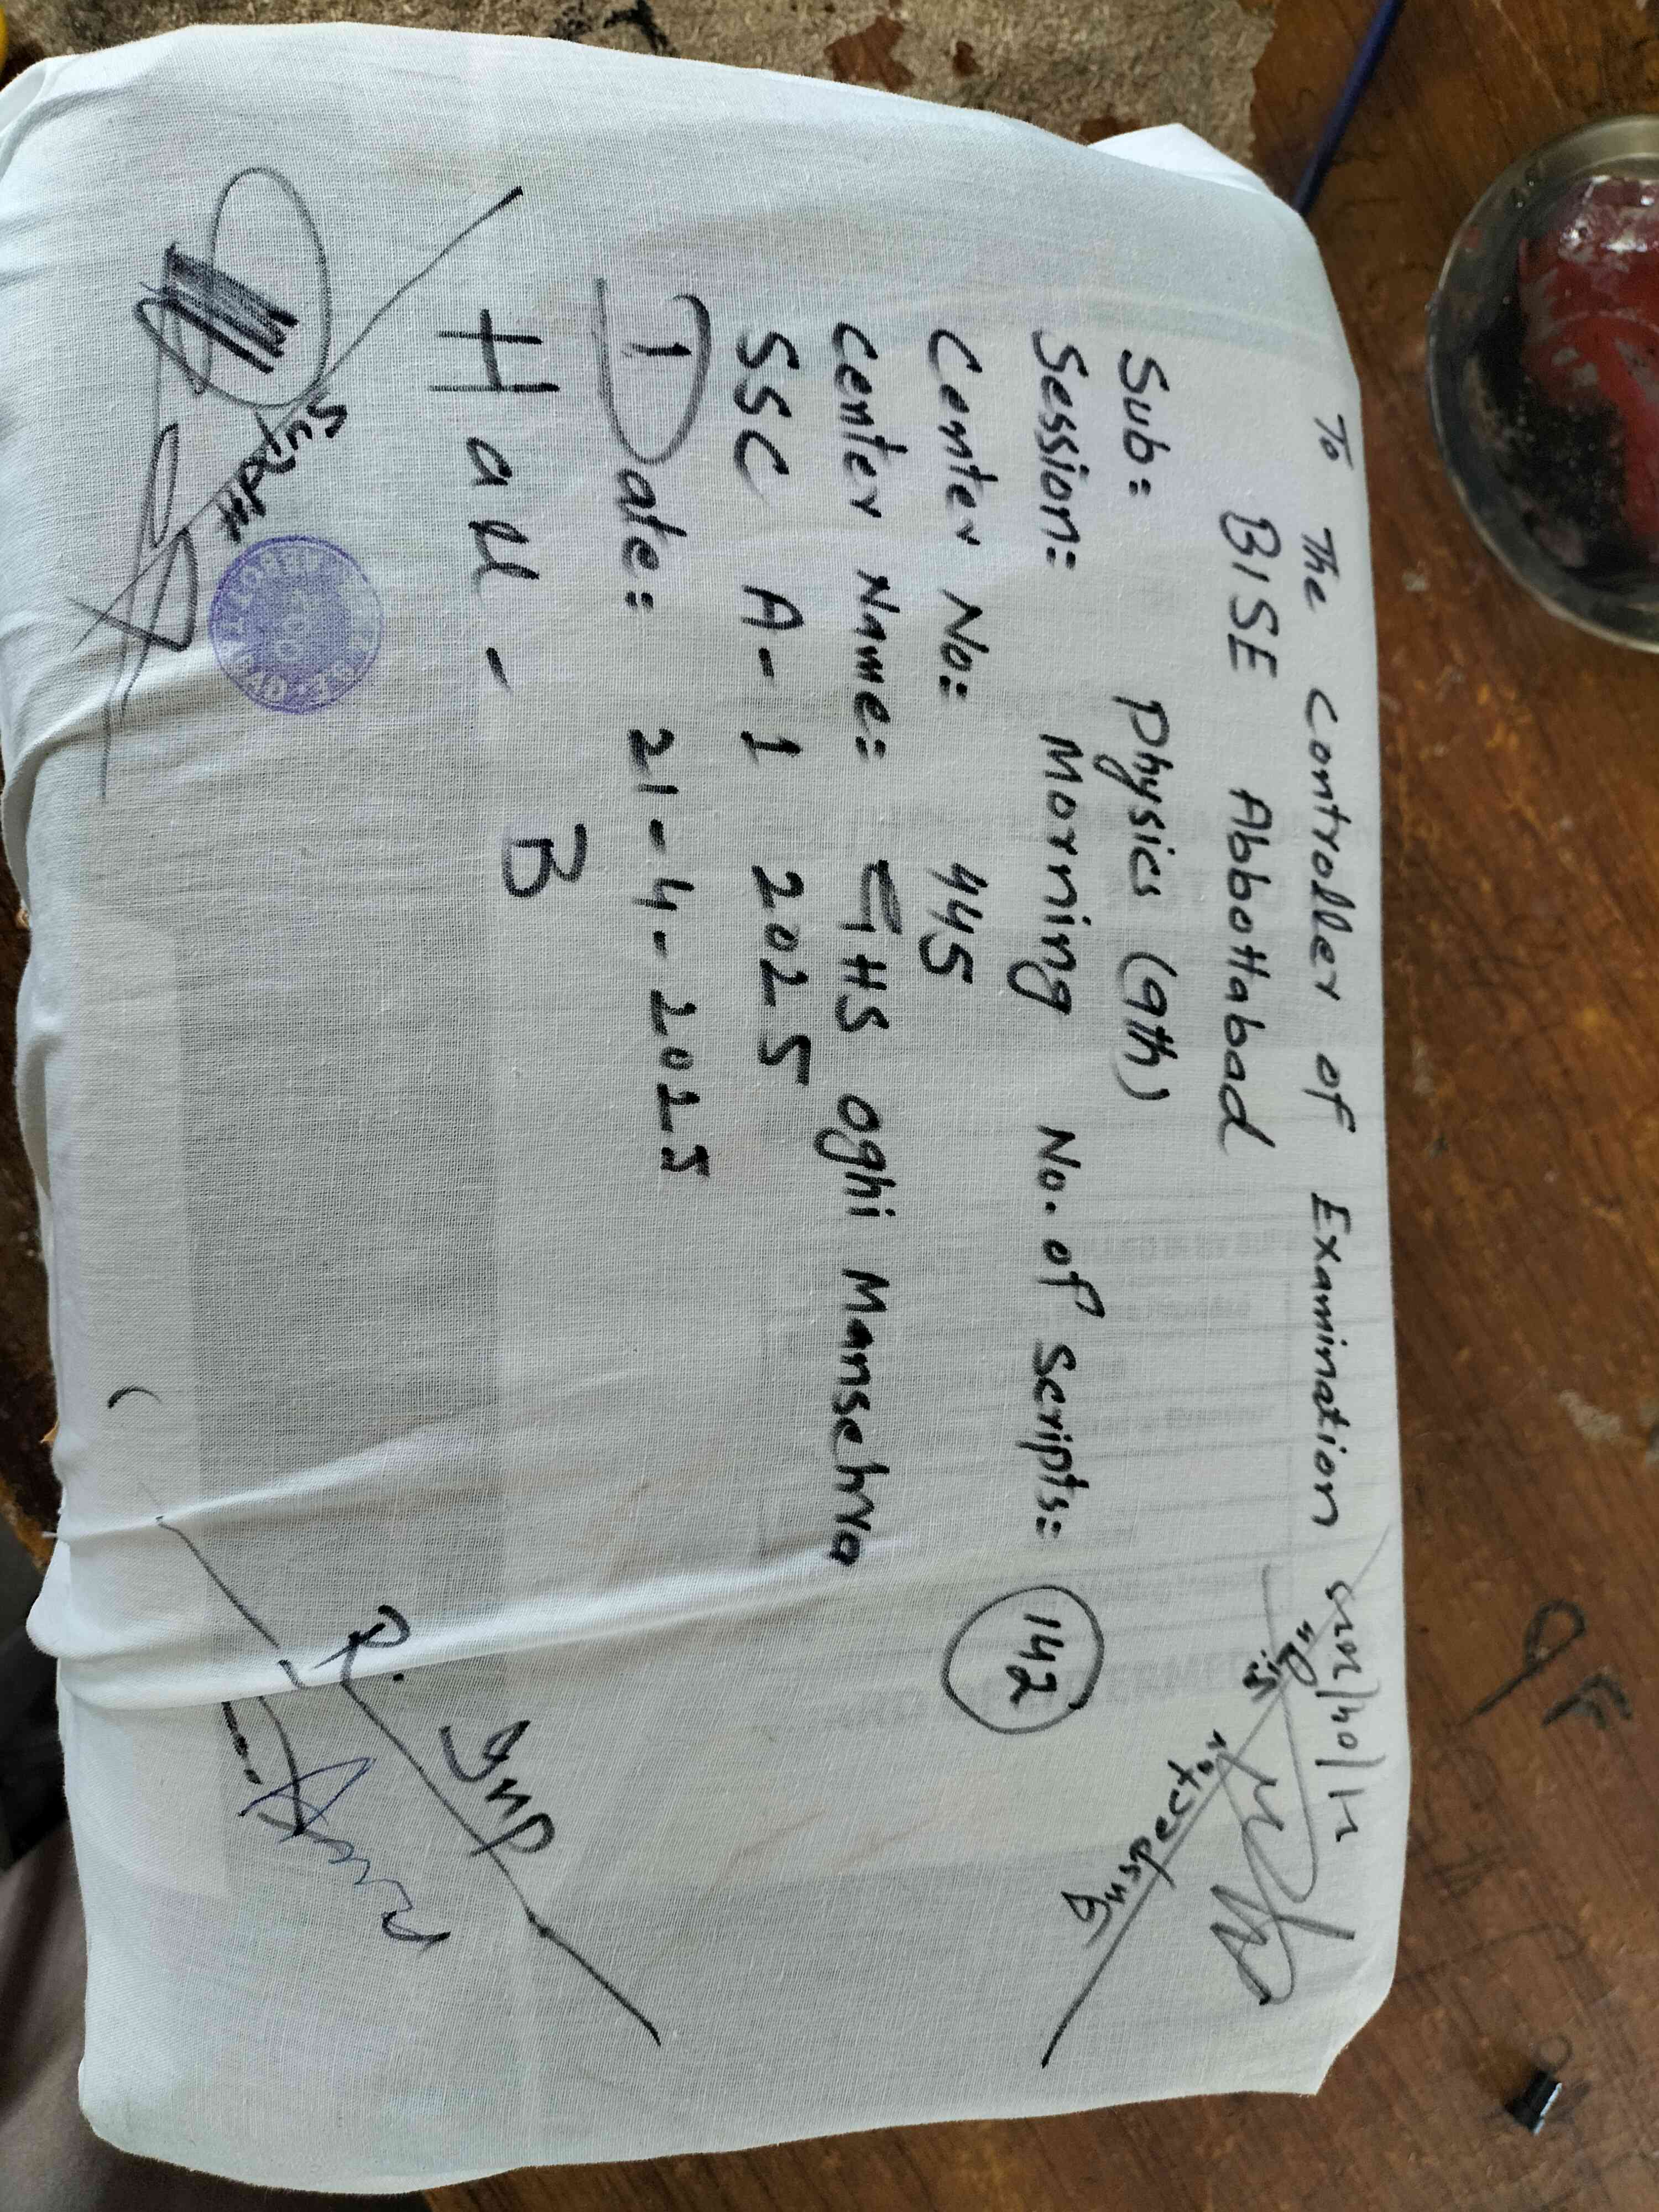 To The Controller of Examination
BISE Abbottabad
Sub: Physics (9th)
Session: Morning No. of Scripts: 142
Center No: 445
Center Name: GHS Oghi Mansehra
SSC A-1 2025
Date: 21-4-2025
Hall - B
Supdtt
Inspector
D. Sup